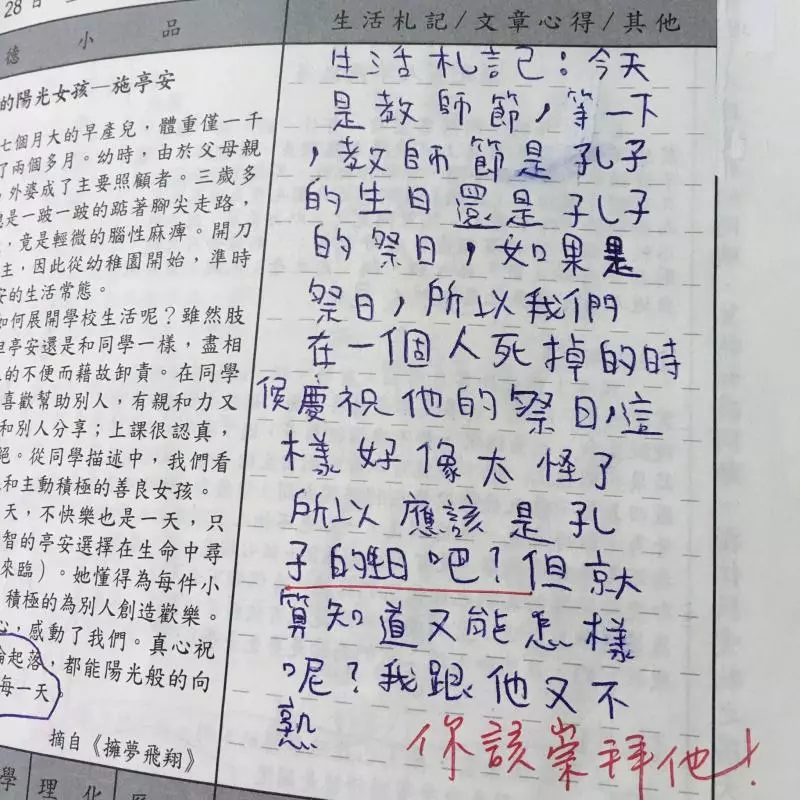 28日
德小品
生活札記/文章心得/其他
的陽光女孩—施亭安
七個月大的早產兒，體重僅一千
了兩個多月。幼時，由於父母親
，外婆成了主要照顧者。三歲多
總是一跛一跛的踮著腳尖走路，
，竟是輕微的腦性麻痺。開刀
主，因此從幼稚園開始，準時
安的生活常態。
如何展開學校生活呢？雖然肢
但亭安還是和同學一樣，盡相
上的不便而藉故卸責。在同學
喜歡幫助別人，有親和力又
和別人分享；上課很認真，
絕。從同學描述中，我們看
和主動積極的善良女孩。
天，不快樂也是一天，只
智的亭安選擇在生命中尋
來臨）。她懂得為每件小
積極的為別人創造歡樂。
心，感動了我們。真心祝
論起落，都能陽光般的向
每一天
摘自《擁夢飛翔》
學理化
生活札記：今天
是教師節，等一下
，教師節是孔子
的生日還是孔子
的祭日，如果是
祭日，所以我們
在一個人死掉的時
候慶祝他的祭日，這
樣好像太怪了
所以應該是孔
子的生日吧？但就
算知道又能怎樣
呢？我跟他又不
熟
你該崇拜他！